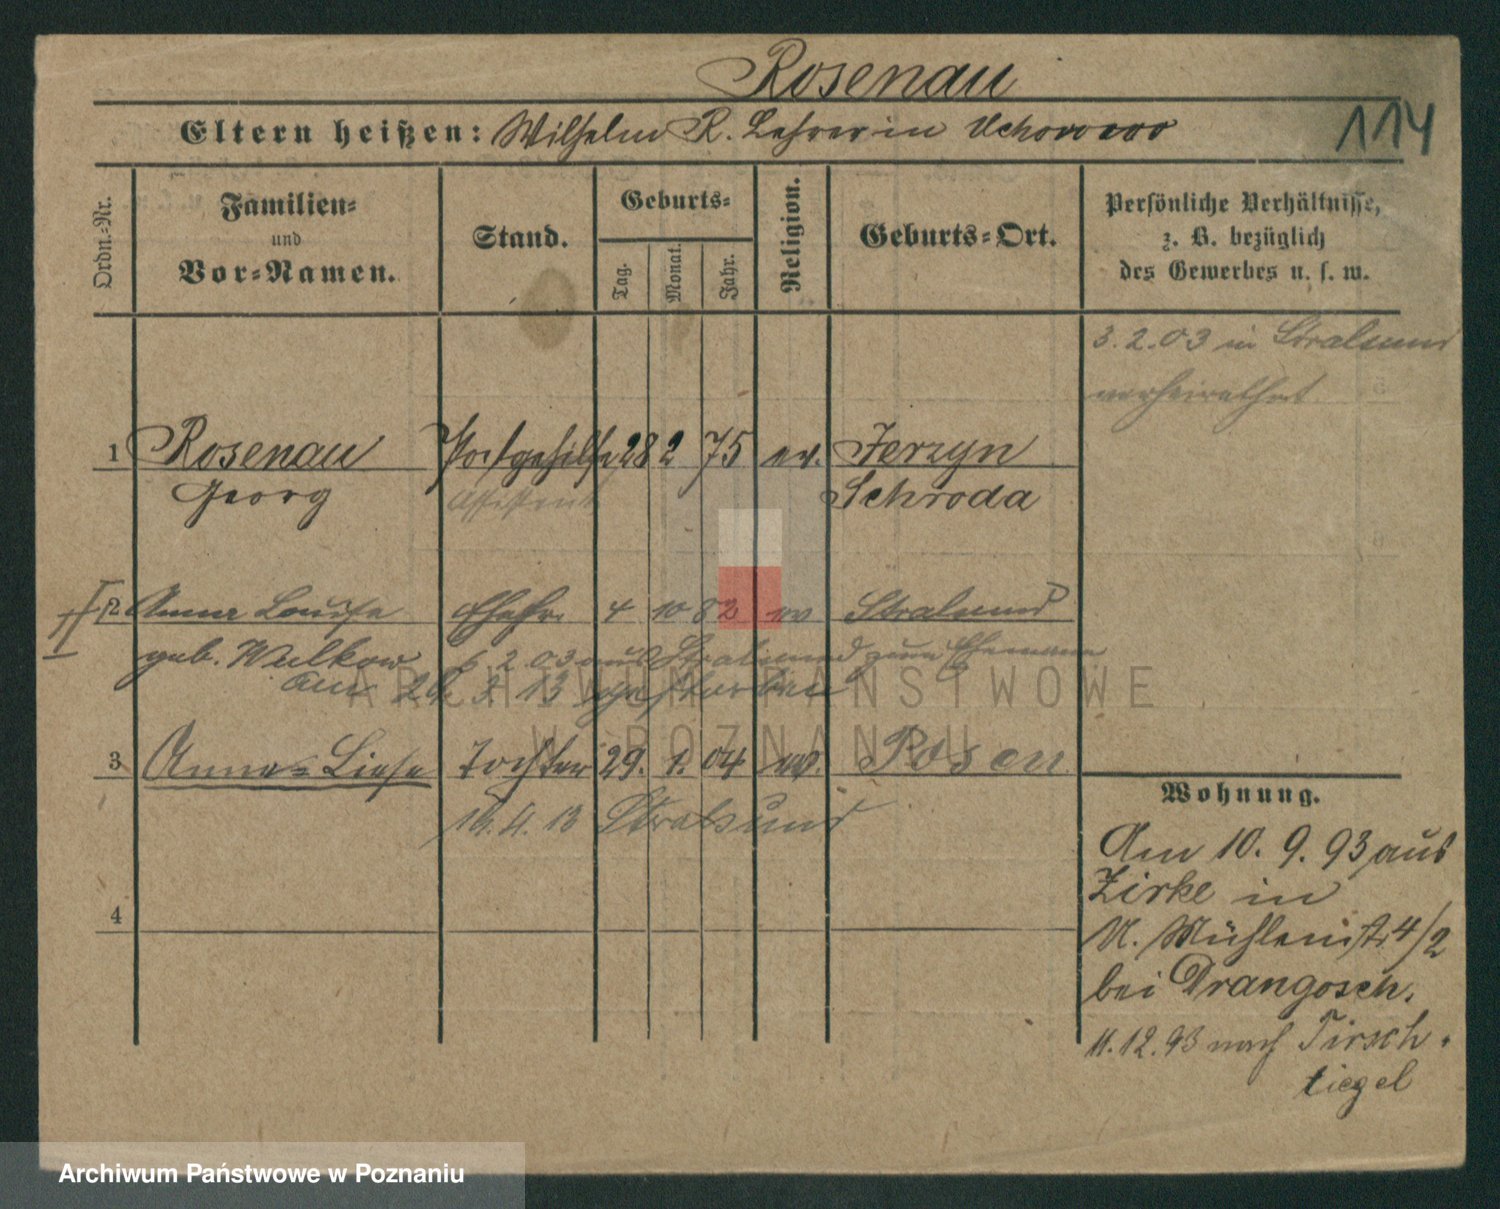 Rosenau
114
Eltern heißen: Wilhelm R. Lehrer in
Ordn.-Nr.
Familien-
und
Vor-Namen.
Stand.
Geburts-
Tag.
Monat.
Jahr.
Religion.
Geburts-Ort.
Persönliche Verhältnisse,
z. B. bezüglich
des Gewerbes u. s. w.
3.2.03 in Stralsund
verheirathet
1 Rosenau Postgehilfe 28 2 75 ev. Jerzyn
Georg Assistent Schroda
II 2 Anna Louise Ehefr. 4 10 82 ev Stralsund
geb. Wulkow 2 03 aus Stralsund zum Ehemann
am 3 13 gestorben
3 Anna-Liese Tochter 29. 1. 04 ev. Posen
16.4.13 Stralsund
4
Wohnung.
Am 10. 9. 93 aus
Zirke in
U. Mühlenstr 4/2
bei Drangosch.
11.12.93 nach Tirsch-
tiegel
ARCHIWUM PAŃSTWOWE
W POZNANIU
Archiwum Państwowe w Poznaniu